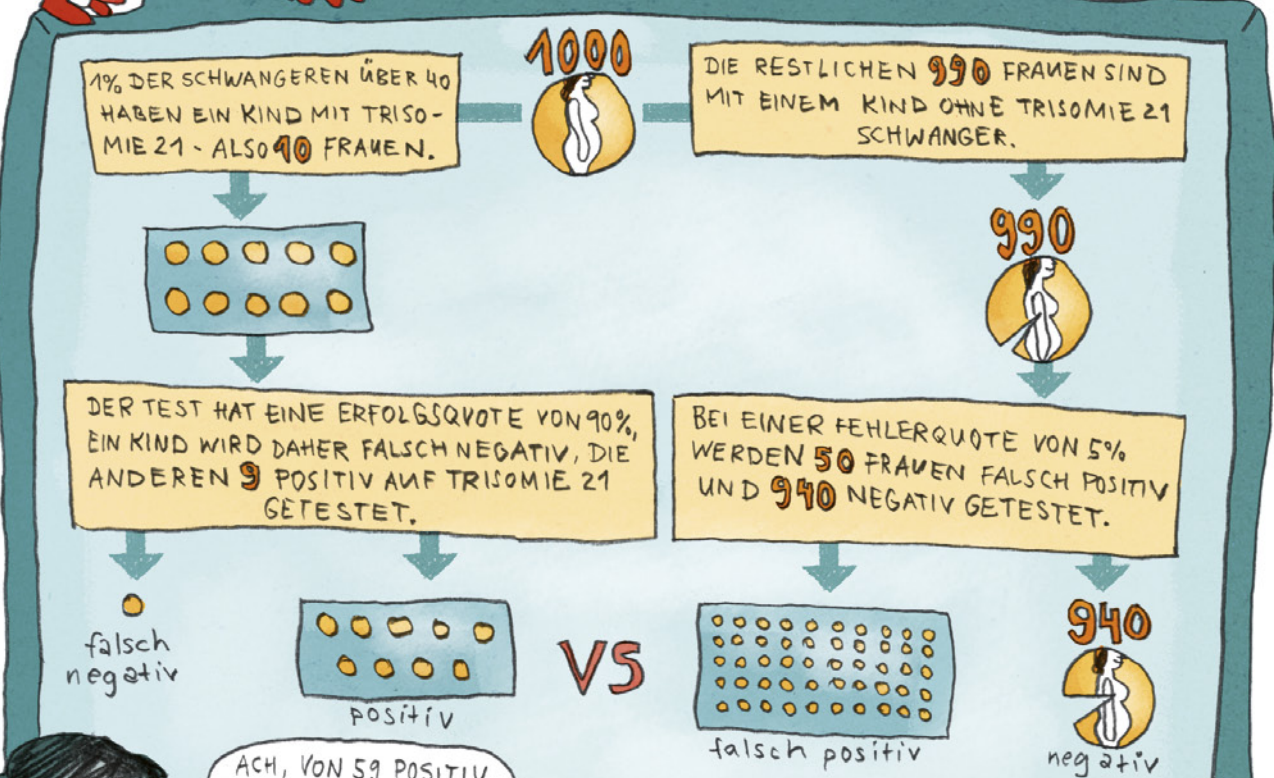 1000
1% DER SCHWANGEREN ÜBER 40
HABEN EIN KIND MIT TRISO-
MIE 21 - ALSO 10 FRAUEN.
DIE RESTLICHEN 990 FRAUEN SIND
MIT EINEM KIND OHNE TRISOMIE 21
SCHWANGER.
990
DER TEST HAT EINE ERFOLGSQUOTE VON 90%,
EIN KIND WIRD DAHER FALSCH NEGATIV, DIE
ANDEREN 9 POSITIV AUF TRISOMIE 21
GETESTET.
BEI EINER FEHLERQUOTE VON 5%
WERDEN 50 FRAUEN FALSCH POSITIV
UND 940 NEGATIV GETESTET.
falsch
negativ
positiv
VS
falsch positiv
940
negativ
ACH, VON 59 POSITIV